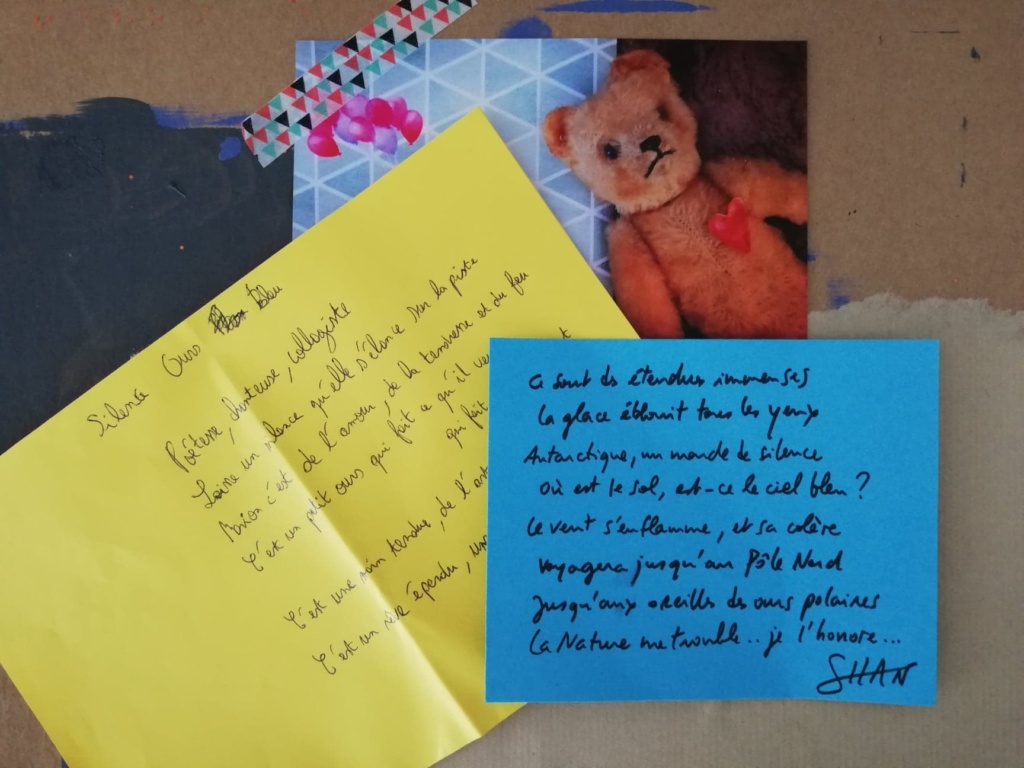 Silence Ours bleu
Poétesse, chanteuse, collagiste
un silence qu'elle s'élance sur la piste
c'est de l'amour, de la tendresse et du feu
C'est un petit ours qui fait ce qu'il
qui fait
C'est une main tendue, de l'art
C'est un rêve épendu, une
Ce sont des étendues immenses
La glace éblouit tous les yeux
Antarctique, un monde de silence
Où est le sol, est-ce le ciel bleu ?
Le vent s'enflamme, et sa colère
voyagera jusqu'au Pôle Nord
Jusqu'aux oreilles des ours polaires
La Nature me trouble.. je l'honore...
SHAN